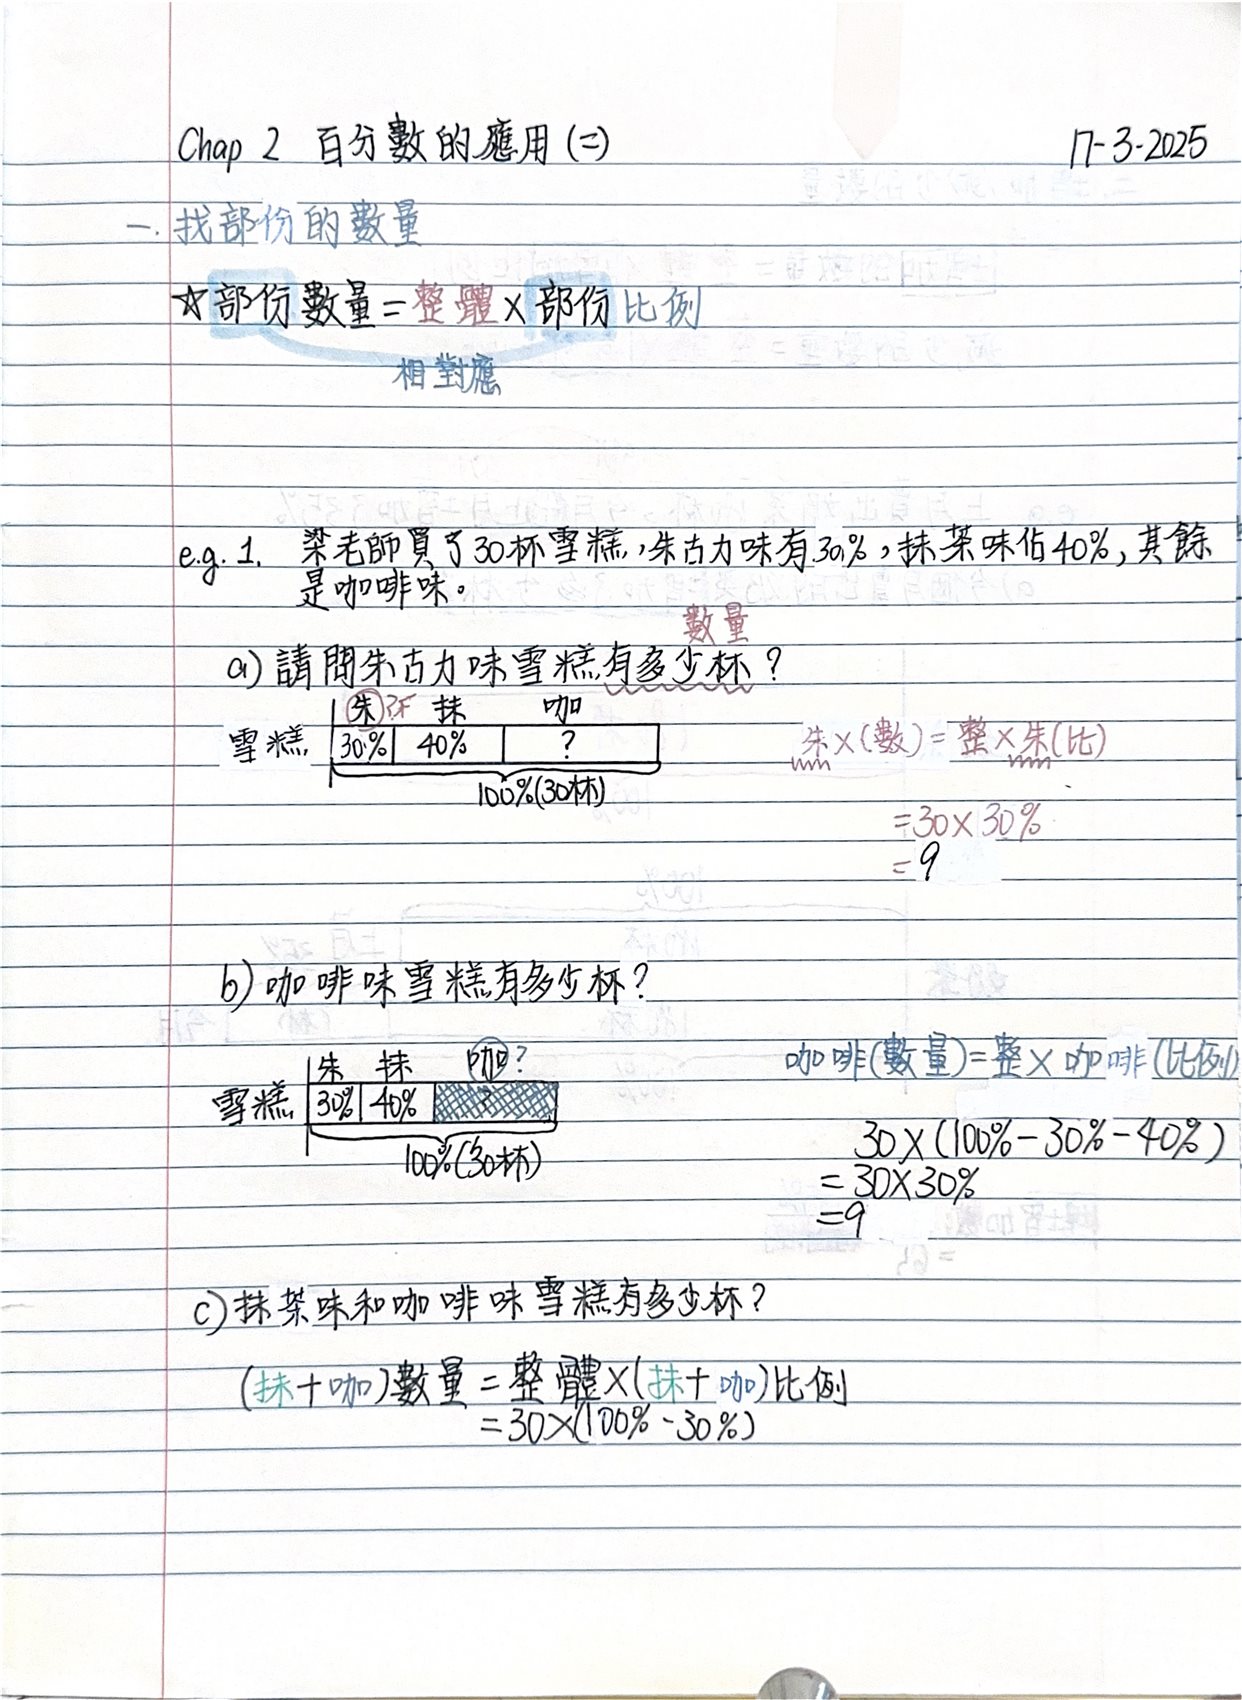 Chap 2 百分數的應用(二) 17-3-2025
一. 找部份的數量
☆部份數量=整體×部份比例
相對應
e.g. 1. 梁老師買了30杯雪糕,朱古力味有30%,抹茶味佔40%,其餘
是咖啡味。
數量
a) 請問朱古力味雪糕有多少杯?
朱 抹 咖
雪糕 30% 40% ?
100%(30杯)
朱×(數)=整×朱(比)
=30×30%
=9
b) 咖啡味雪糕有多少杯?
朱 抹 咖?
雪糕 30% 40% ?
100%(30杯)
咖啡(數量)=整×咖啡(比例)
30×(100%-30%-40%)
=30×30%
=9
c) 抹茶味和咖啡味雪糕有多少杯?
(抹+咖)數量=整體×(抹+咖)比例
=30×(100%-30%)